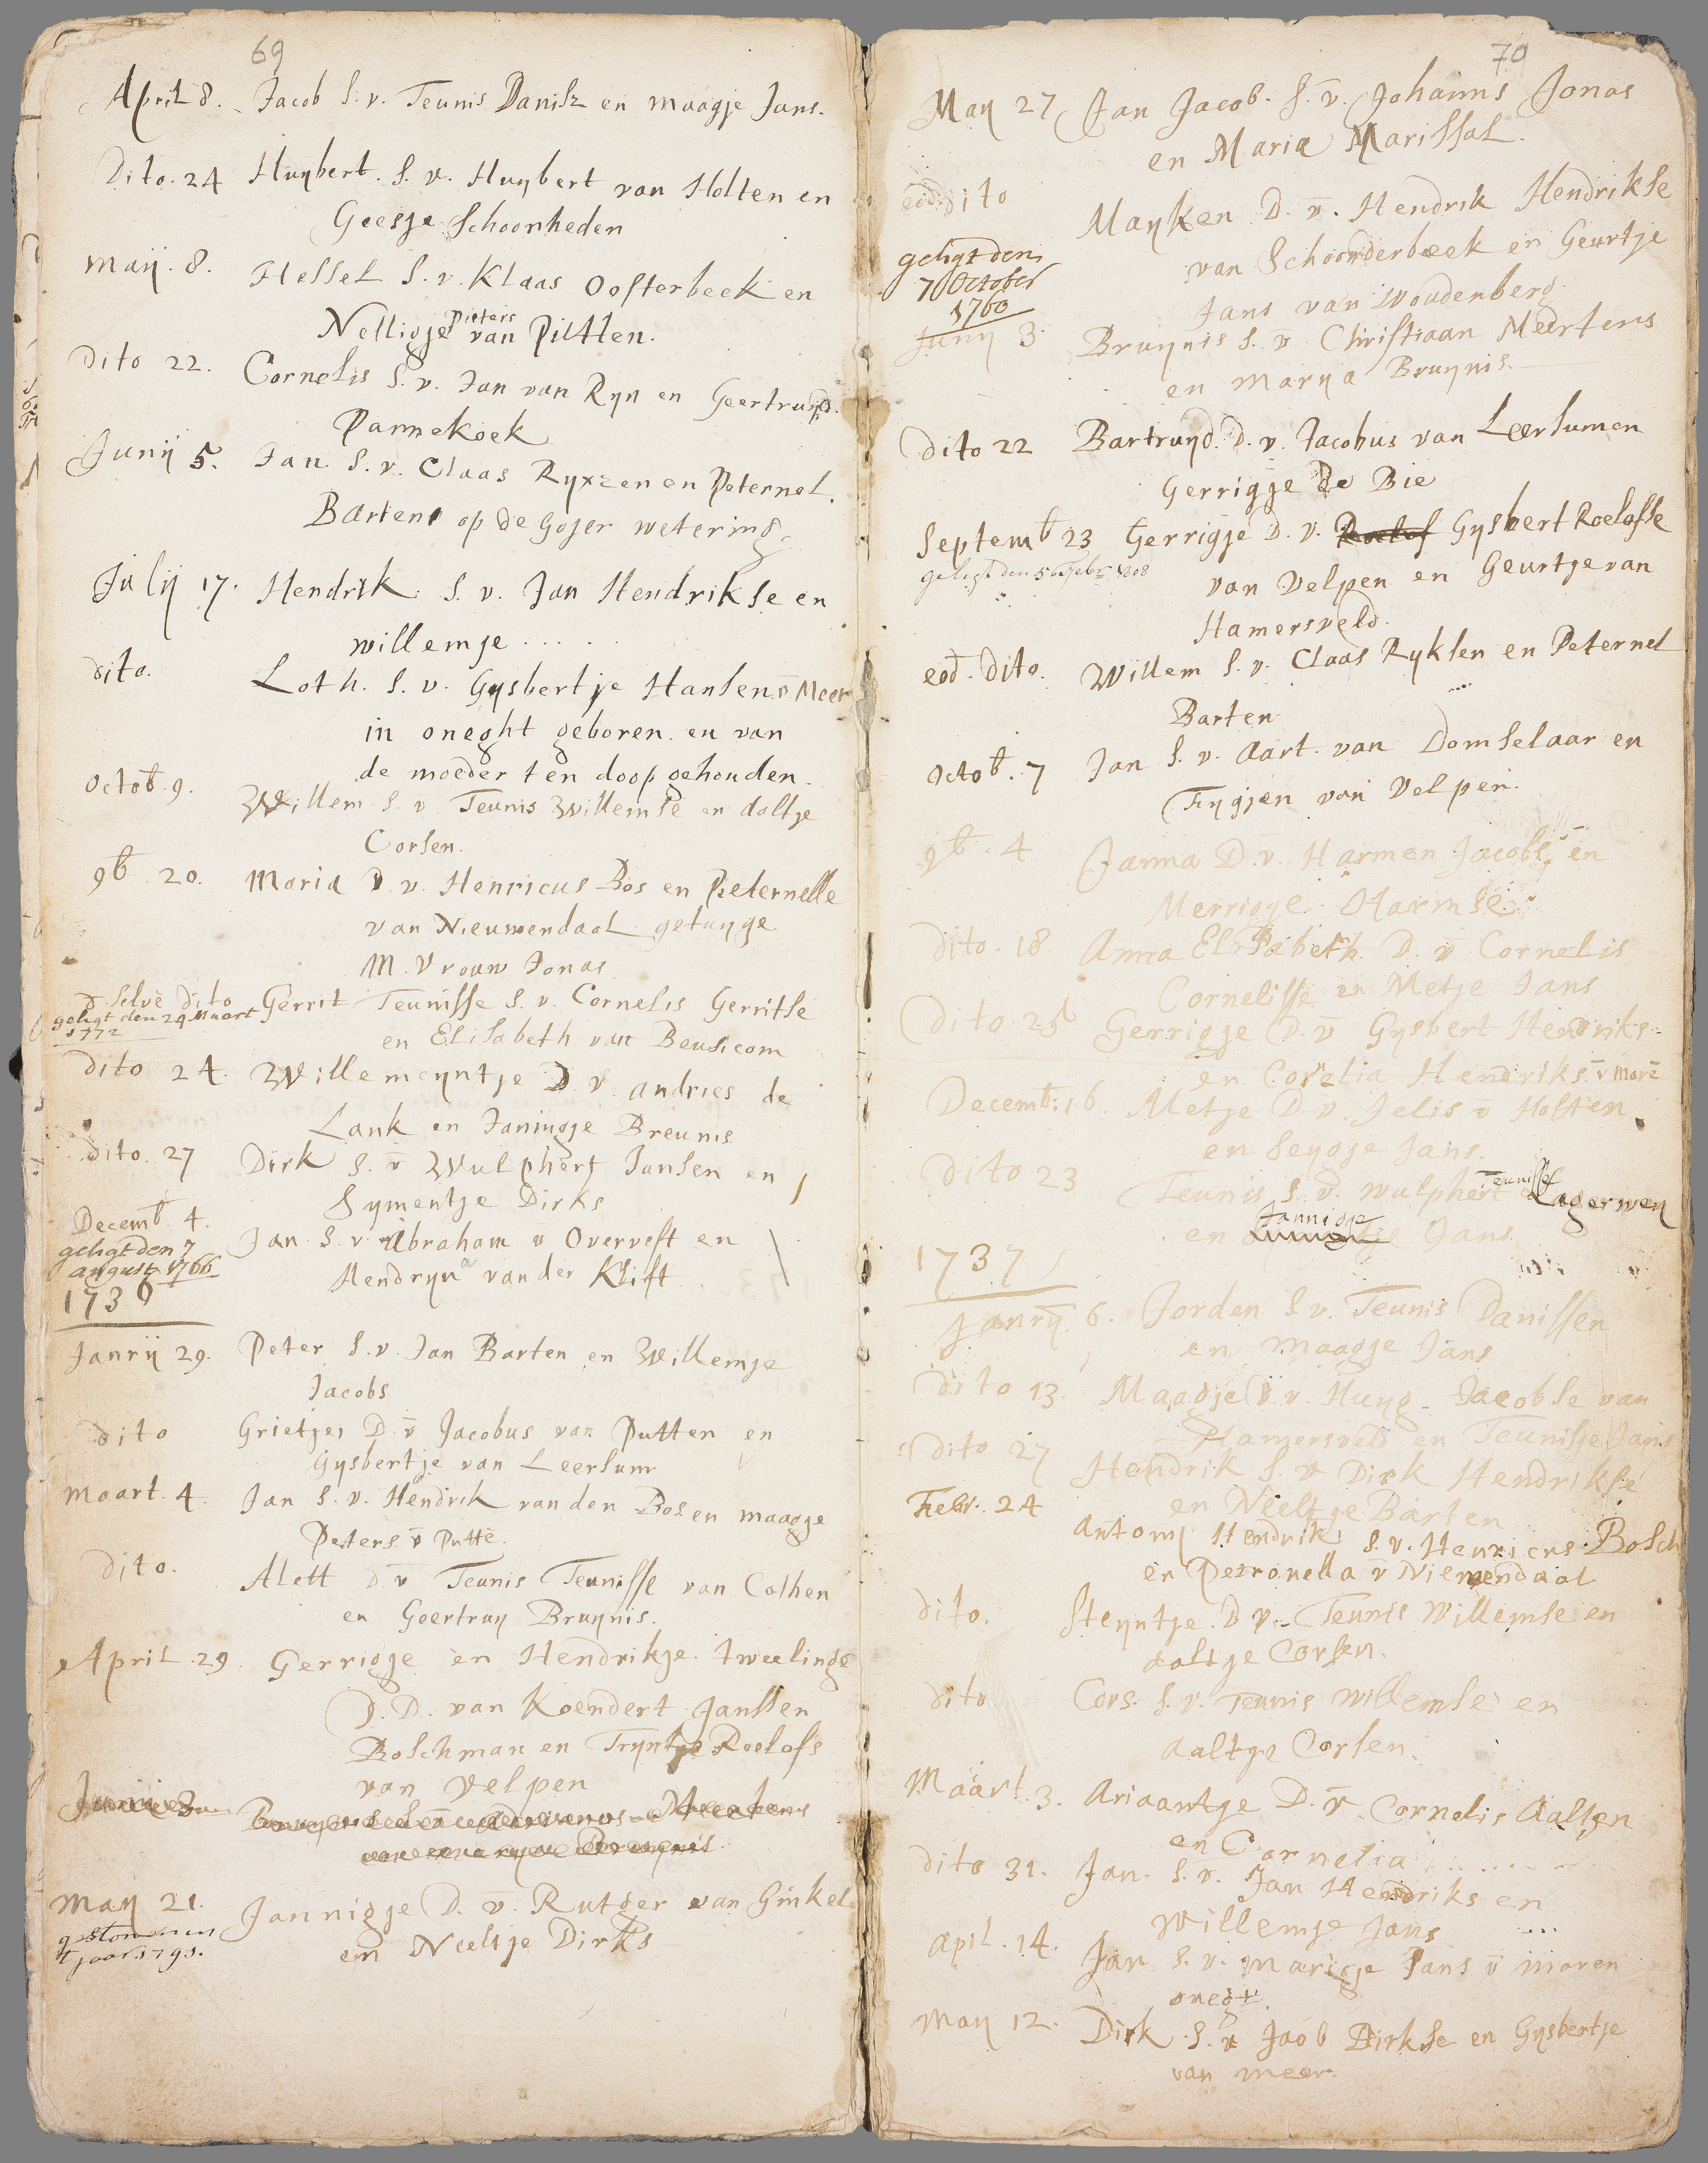 69
April 8. Jacob S. v. Teunis Danisz en maagje Jans.
Dito. 24 Huybert. S. v. Huybert van Holten en
Geesje Schoonheden
maij. 8. Hessel S. v. Klaas Oosterbeek en
Pieters
Nelligje van Putten.
Dito 22. Cornelis S. v. Jan van Ryn en Geertruyd.
Pannekoek
Junij 5. Jan. S. v. Claas Ryxzen en Peternel.
Bartens op de Gojer wetering
Julij 17. Hendrik S. v. Jan Hendrikse en
willemje . . . . .
dito. Loth. S. v. Gysbertje Hansen v̄ Meer
in oneght geboren en van
de moeder ten doop gehouden.
Octob. 9. Willem S. v̄ Teunis Willemse en aaltje
Corsen.
9b 20. Maria D. v. Henricus Bos en Pieternelle
van Nieuwendaal getuyge
M. Vrouw Jonas
d. selve dito Gerrit Teunisse S. v. Cornelis Gerritse
geligt den 29 Maart
1772
en Elisabeth van Beusicom
dito 24. Willemeyntje D. v. andries de
Lank en Janingje Breunis
dito. 27 Dirk S. v̄ Wulphert Jansen en
Symentje Dirks
Decemb. 4. Jan S. v. Abraham v̄ Overvest en
geligt den 7
august 1766
Hendryna van der Klift
1736
Janrij 29. Peter S. v. Jan Barten en Willemje
Jacobs
dito Grietjen D. v̄ Jacobus van Putten en
Gysbertje van Leersum
Maart. 4. Jan S. v. Hendrik van den Bos en maagje
Peters v̄ Putte.
dito. Alett D. v̄ Teunis Teunisse van Cothen
en Geertruy Bruynis.
April. 29 Gerrigje en Hendrikje. tweelinge
D. D. van Koendert Janssen
Boschman en Tryntje Roelofs
van Velpen
Junij 3
May 21. Jannigje D. v̄. Rutger van Ginkel
gestorven in
't jaar 1791.
en Neeltje Dirks
70
May 27 Jan Jacob. S. v̄. Johanns Jonas
en Maria Marissal.
eod. dito Mayken D. v̄. Hendrik Hendrikse
geligt den
7 October
1760
van Schoonderbeek en Geurtje
Jans van Woudenberg.
Juny 3. Bruynis S. v̄ Christiaan Meertens
en Marya Bruynis.
Dito 22 Bartruyd. D. v. Jacobus van Leersumen
Gerrigje de Bie
Septemb 23 Gerrigje D. v. Roelof Gysbert Roelofse
geligt den 5 Febr. 1808
van Velpen en Geurtje van
Hamersveld.
eod. Dito. Willem S. v. Claas Ryksen en Peternel
Barten
Octob. 7 Jan S. v. Aart. van Domselaar en
Trygjen van Velpen.
9b. 4 Janna D. v̄. Harmen Jacobs. en
Merrigje Harmse
dito. 18. Anna Elisabeth. D. v̄ Cornelis
Cornelisse en Metje Jans
Dito 25 Gerrigje D. v̄ Gysbert Hendriks
en Cornelia Hendriks. v̄ Mare
Decemb. 16. Metje D. v. Jelis v̄ Holten
en Seygje Jans.
dito 23 Teunis S. v̄. Wulphert Teunisse Lagerwey
Jannigje
en Jans.
1737
Janrij. 6. Jorden S. v. Teunis Danissen
en maagje Jans
dito 13. Maagje D. v. Huyg. Jacobse van
Hamersveld en Teunisje Jans
dito 27 Hendrik S. v̄ Dirk Hendrikse
en Neeltje Barten
Febr. 24 Antony Hendrik S. v. Henricus Bosch
en Petronella v̄ Niewendaal
dito. Steyntje. D v. Teunis Willemse en
aaltje Corsen.
dito Cors. S. v. Teunis Willemse en
Aaltje Corsen.
Maart. 3. Ariaantje D. v̄. Cornelis Aalten
en Cornelia . . . . .
dito 31. Jan. S. v. Jan Hendriks en
Willemje Jans
April. 14. Jan S. v. marigje Jans v̄ maren
onegt.
May 12. Dirk. S. v̄ Jaob Dirkse en Gysbertje
van meer.